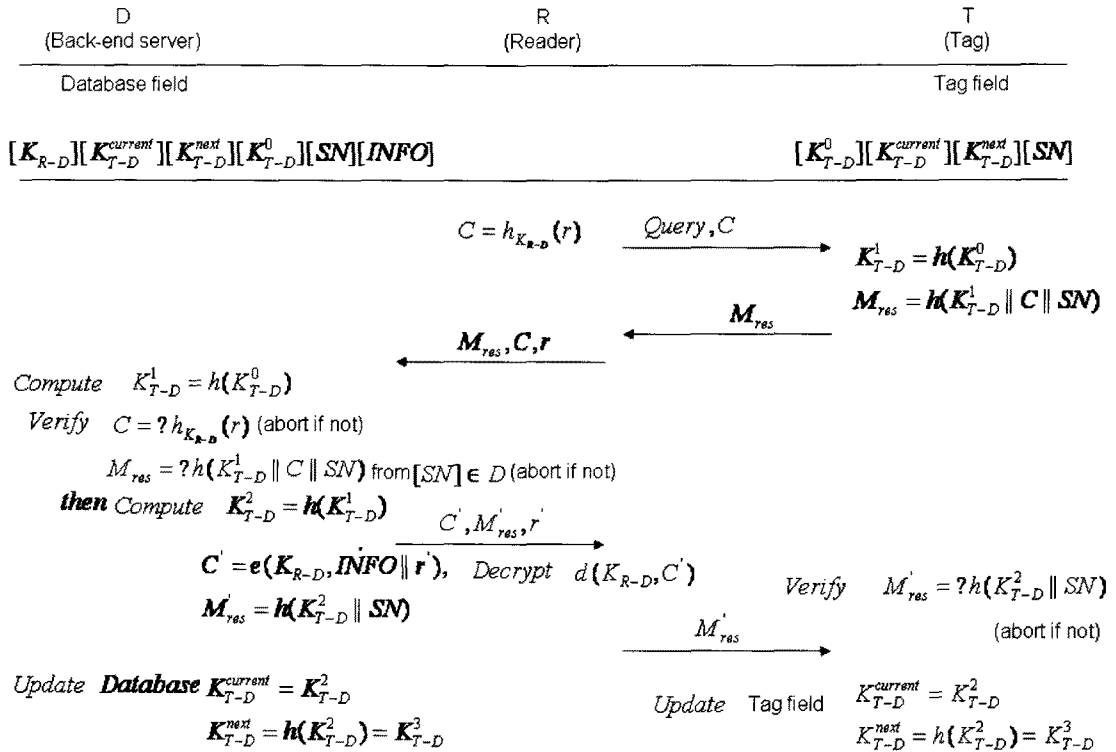 D R T
(Back-end server) (Reader) (Tag)
Database field Tag field
[K_{R-D}][K_{T-D}^{current}][K_{T-D}^{next}][K_{T-D}^{0}][SN][INFO] [K_{T-D}^{0}][K_{T-D}^{current}][K_{T-D}^{next}][SN]
C = h_{K_{R-D}}(r) Query, C
K_{T-D}^{1} = h(K_{T-D}^{0})
M_{res} = h(K_{T-D}^{1} ∥ C ∥ SN)
M_{res}
M_{res}, C, r
Compute K_{T-D}^{1} = h(K_{T-D}^{0})
Verify C = ? h_{K_{R-D}}(r) (abort if not)
M_{res} = ? h(K_{T-D}^{1} ∥ C ∥ SN) from [SN] ∈ D (abort if not)
then Compute K_{T-D}^{2} = h(K_{T-D}^{1})
C', M'_{res}, r'
C' = e(K_{R-D}, INFO ∥ r'), Decrypt d(K_{R-D}, C')
Verify M'_{res} = ? h(K_{T-D}^{2} ∥ SN)
M'_{res} = h(K_{T-D}^{2} ∥ SN)
(abort if not)
M'_{res}
Update Database K_{T-D}^{current} = K_{T-D}^{2}
Update Tag field K_{T-D}^{current} = K_{T-D}^{2}
K_{T-D}^{next} = h(K_{T-D}^{2}) = K_{T-D}^{3}
K_{T-D}^{next} = h(K_{T-D}^{2}) = K_{T-D}^{3}